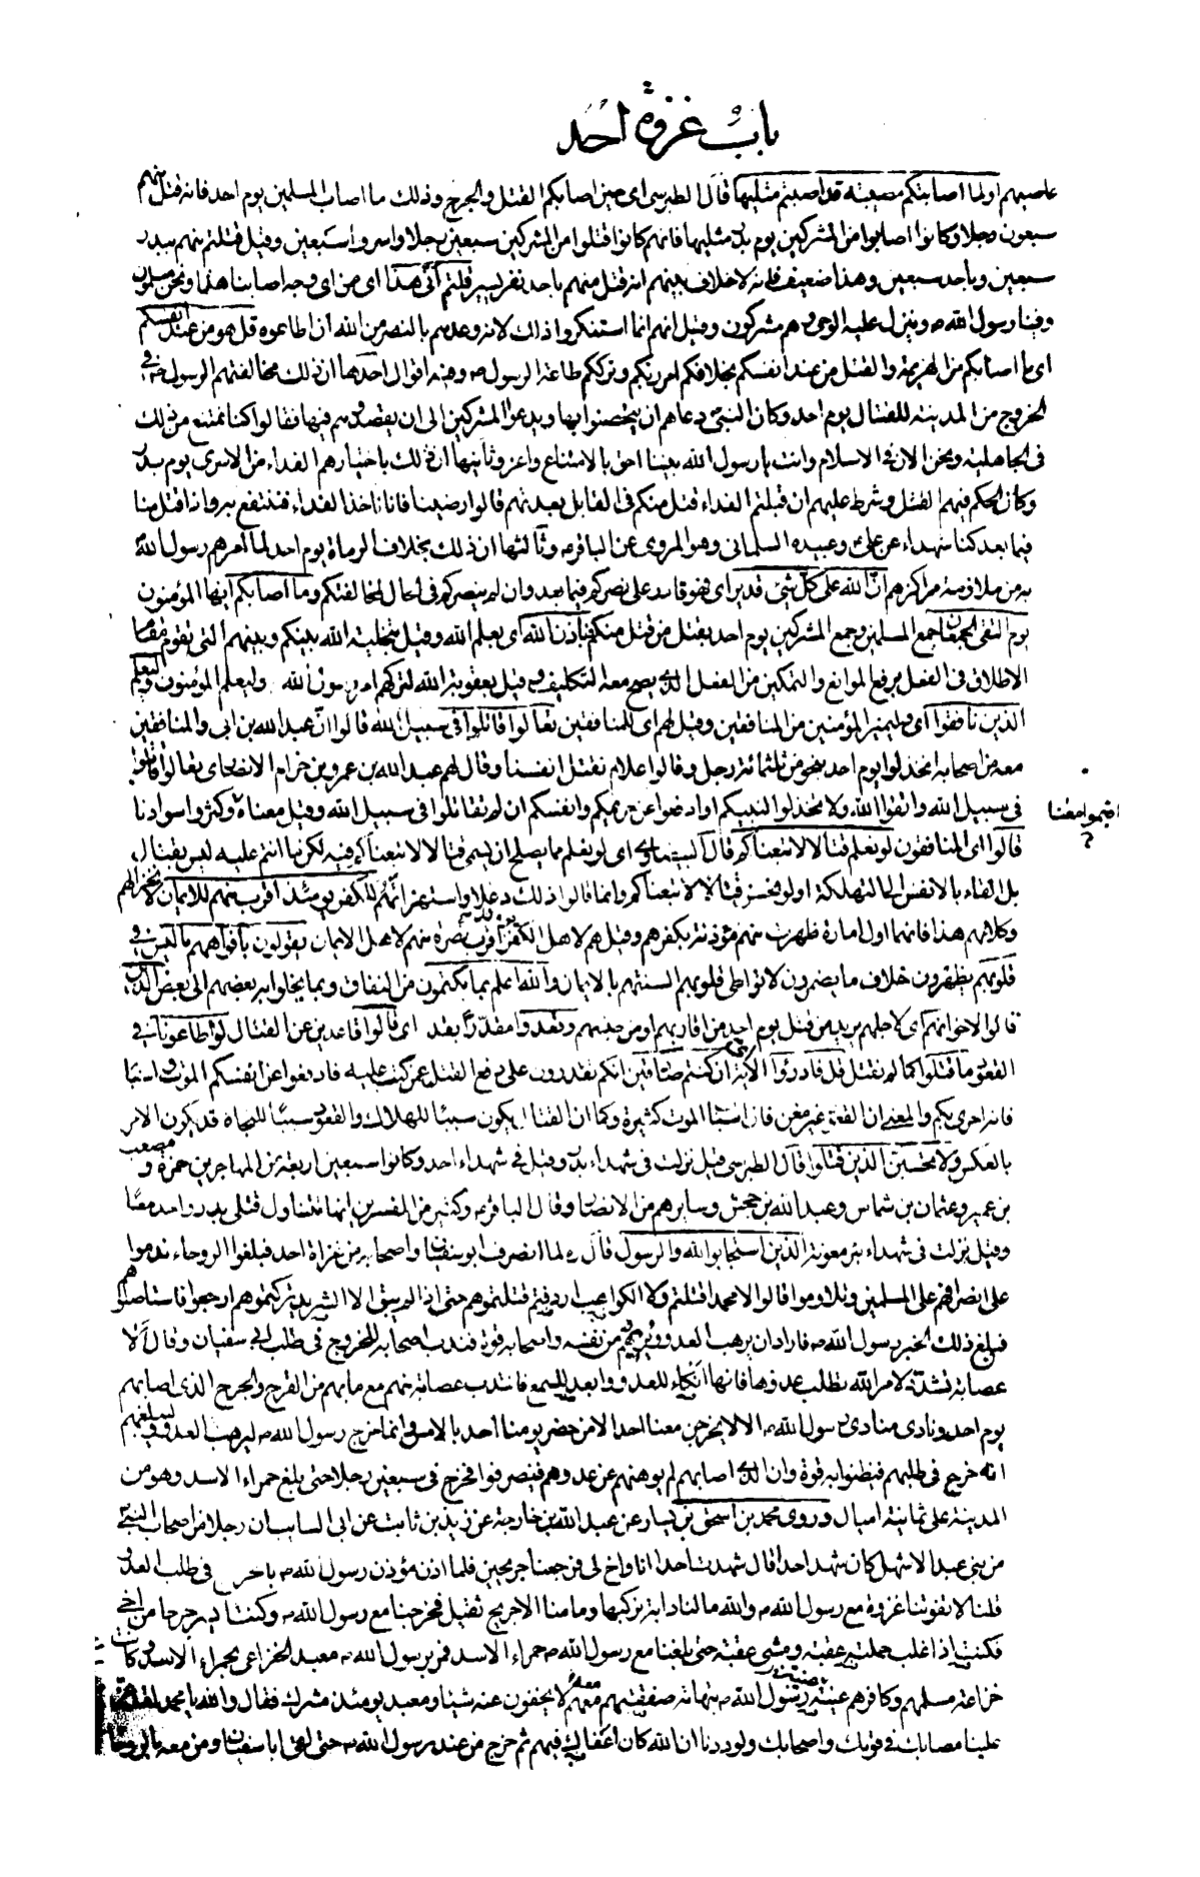 باب غزوة احد
عاصيهم اولما اصابتكم مصيبة قد اصبتم مثليها قال الطبرسى اى حين اصابكم القتل والجرح وذلك ما اصاب المسلمين يوم احد فانه قتل منهم
سبعون رجلا وكانوا اصابوا من المشركين يوم بدر مثليها فانهم كانوا قتلوا من المشركين سبعين رجلا واسروا سبعين وقيل قتلتم منهم ببدر
سبعين وباحد سبعين وهذا ضعيف فانه لا خلاف بينهم انه قتل منهم باحد نفر يسير قلتم أنّى هذا اى من اى وجه اصابنا هذا ونحن مسلمون
وفينا رسول الله ص وينزل عليه الوحى وهم مشركون وقيل انهم انما استنكروا ذلك لانه وعدهم بالنصر من الله ان اطاعوه قل هو من عند انفسكم
اى ما اصابكم من الهزيمة والقتل من عند انفسكم بخلافكم امر ربكم وترككم طاعة الرسول ص وفيه اقوال احدها ان ذلك مخالفتهم الرسول ص فى
الخروج من المدينة للقتال يوم احد وكان النبى دعاهم ان يتحصنوا بها ويدعوا المشركين الى ان يقصدوهم فيها فقالوا كنا نمتنع من ذلك
فى الجاهلية ونحن الان فى الاسلام وانت يا رسول الله بيننا احق بالامتناع واعز وثانيها ان ذلك باختيارهم الفداء من الاسرى يوم بدر
وكان الحكم فيهم القتل وشرط عليهم ان قبلتم الفداء قتل منكم فى القابل بعدتهم قالوا رضينا فانا ناخذ الفداء فننتفع به واذا قتل منا
فيما بعد كنا شهداء عن على وعبيده السلمانى وهو المروى عن الباقر ع وثالثها ان ذلك بخلاف الرماة يوم احد لما امرهم رسول الله
به من ملازمة مراكزهم انّ الله على كلّ شئ قدير اى فهو قادر على نصركم فيما بعد وان لم ينصركم فى الحال لمخالفتكم وما اصابكم ايها المؤمنون
يوم التقى الجمعان جمع المسلمين وجمع المشركين يوم احد بقتل من قتل منكم فباذن الله اى بعلم الله وقيل بتخلية الله بينكم وبينهم التى تقوم مقام
الاطلاق فى الفعل برفع الموانع والتمكين من الفعل الذى يصح معه التكليف وقيل بعقوبة الله لتركهم امر رسول الله وليعلم المؤمنين وليعلم
الذين نافقوا اى وليميز المؤمنين من المنافقين وقيل لهم اى للمنافقين تعالوا قاتلوا فى سبيل الله قالوا انّ عبد الله بن ابى والمنافقين
معه من اصحابه انخذلوا يوم احد بنحو من ثلثمائة رجل وقالوا علام نقتل انفسنا وقال لهم عبد الله بن عمرو بن حزام الانصارى تعالوا قاتلوا
فى سبيل الله واتقوا الله ولا تخذلوا نبيكم او ادفعوا عن حريمكم وانفسكم ان لم تقاتلوا فى سبيل الله وقيل معناه وكثروا سوادنا
اقيموا معنا
قالوا اى المنافقون لو نعلم قتالا لاتبعناكم قال البيضاوى اى لو نعلم ما يصلح ان يسمى قتالا لاتبعناكم فيه لكن ما انتم عليه ليس بقتال
بل القاء بالانفس الى التهلكة او لو نحسن قتالا لاتبعناكم وانما قالوا ذلك دغلا واستهزاء هُم للكفر يومئذ اقرب منهم للايمان لانخزالهم
وكلامهم هذا فانهما اول امارة ظهرت منهم مؤذنة بكفرهم وقيل هم لاهل الكفر اقرب نصرة منهم لاهل الايمان يقولون بأفواههم ما ليس فى
قلوبهم يظهرون خلاف ما يضمرون لا تواطى قلوبهم السنتهم بالايمان والله اعلم بما يكتمون من النفاق وبما يخلوا به بعضهم الى بعض الذين
قالوا لاخوانهم اى لاجلهم يريد من قتل يوم احد من اقاربهم او من جنسهم وقعدوا مقدّرا بقد اى قالوا قاعدين عن القتال لو اطاعونا فى
القعود ما قتلوا كما لم نقتل قل فادرؤا الاية ان كنتم صادقين انكم تقدرون على دفع القتل عمن كتب عليه فادفعوا عن انفسكم الموت واسبابه
فانه احرى بكم والمعنى ان القعود غير مغن فان اسباب الموت كثيرة وكما ان القتال يكون سببا للهلاك والقعود سببا للنجاة قد يكون الامر
بالعكس ولا تحسبن الذين قتلوا قال الطبرسى قيل نزلت فى شهداء بدر وقيل فى شهداء احد وكانوا سبعين اربعة من المهاجرين حمزة و مصعب
بن عمير وعثمان بن شماس وعبد الله بن جحش وسايرهم من الانصار وقال الباقر ع وكثير من المفسرين انها تتناول قتلى بدر واحد معا
وقيل نزلت فى شهداء بئر معونة الذين استجابوا لله والرسول قال ره لما انصرف ابو سفيان واصحابه من غزاة احد فبلغوا الروحاء ندموا
على انصرافهم على المسلمين وتلاوموا فقالوا لا محمدا قتلتم ولا الكواعب اردفتم قتلتموهم حتى اذا لم يبق الا الشريد تركتموهم ارجعوا فاستاصلوهم
فبلغ ذلك الخبر رسول الله ص فاراد ان يرهب العدو ويريهم من نفسه واصحابه قوة فندب اصحابه للخروج فى طلب ابى سفيان وقال ألا
عصابة تشدّد لامر الله تطلب عدوها فانها انكاء للعدو وابعد للسمع فانتدب عصابة منهم مع ما بهم من القرح والجرح الذى اصابهم
يوم احد ونادى منادى رسول الله ص الا لا يخرجن معنا احد الا من حضر يومنا احد بالامس وانما خرج رسول الله ص ليرهب العدو وليبلغهم
انه خرج فى طلبهم فيظنوا به قوة وان الذى اصابهم لم يوهنهم عن عدوهم فينصرفوا فخرج فى سبعين رجلا حتى بلغ حمراء الاسد وهو من
المدينة على ثمانية اميال وروى محمد بن اسحق بن يسار عن عبد الله بن خارجة عن زيد بن ثابت عن ابى السايب ان رجلا من اصحاب النبى
من بنى عبد الاشهل كان شهد احدا قال شهدت احدا انا واخ لى فرجعنا جريحين فلما اذن مؤذن رسول الله ص بالخروج فى طلب العدو
قلنا لا تفوتنا غزوة مع رسول الله ص والله ما لنا دابة نركبها وما منا الا جريح ثقيل فخرجنا مع رسول الله ص وكنت ايسر جرحا من اخى
فكنت اذا غلب حملته عقبة ومشى عقبة حتى بلغنا مع رسول الله ص حمراء الاسد فمر برسول الله ص معبد الخزاعى بحمراء الاسد وكانت
خزاعة مسلمهم وكافرهم عيبة رسول الله ص بتهامة صفقتهم معه لا يخفون عنه شيئا ومعبد يومئذ مشرك فقال والله يا محمد لقد عز
علينا مصابك فى قومك واصحابك ولوددنا ان الله كان اعفاك فيهم ثم خرج من عند رسول الله ص حتى لقى ابا سفيان ومن معه بالروحاء